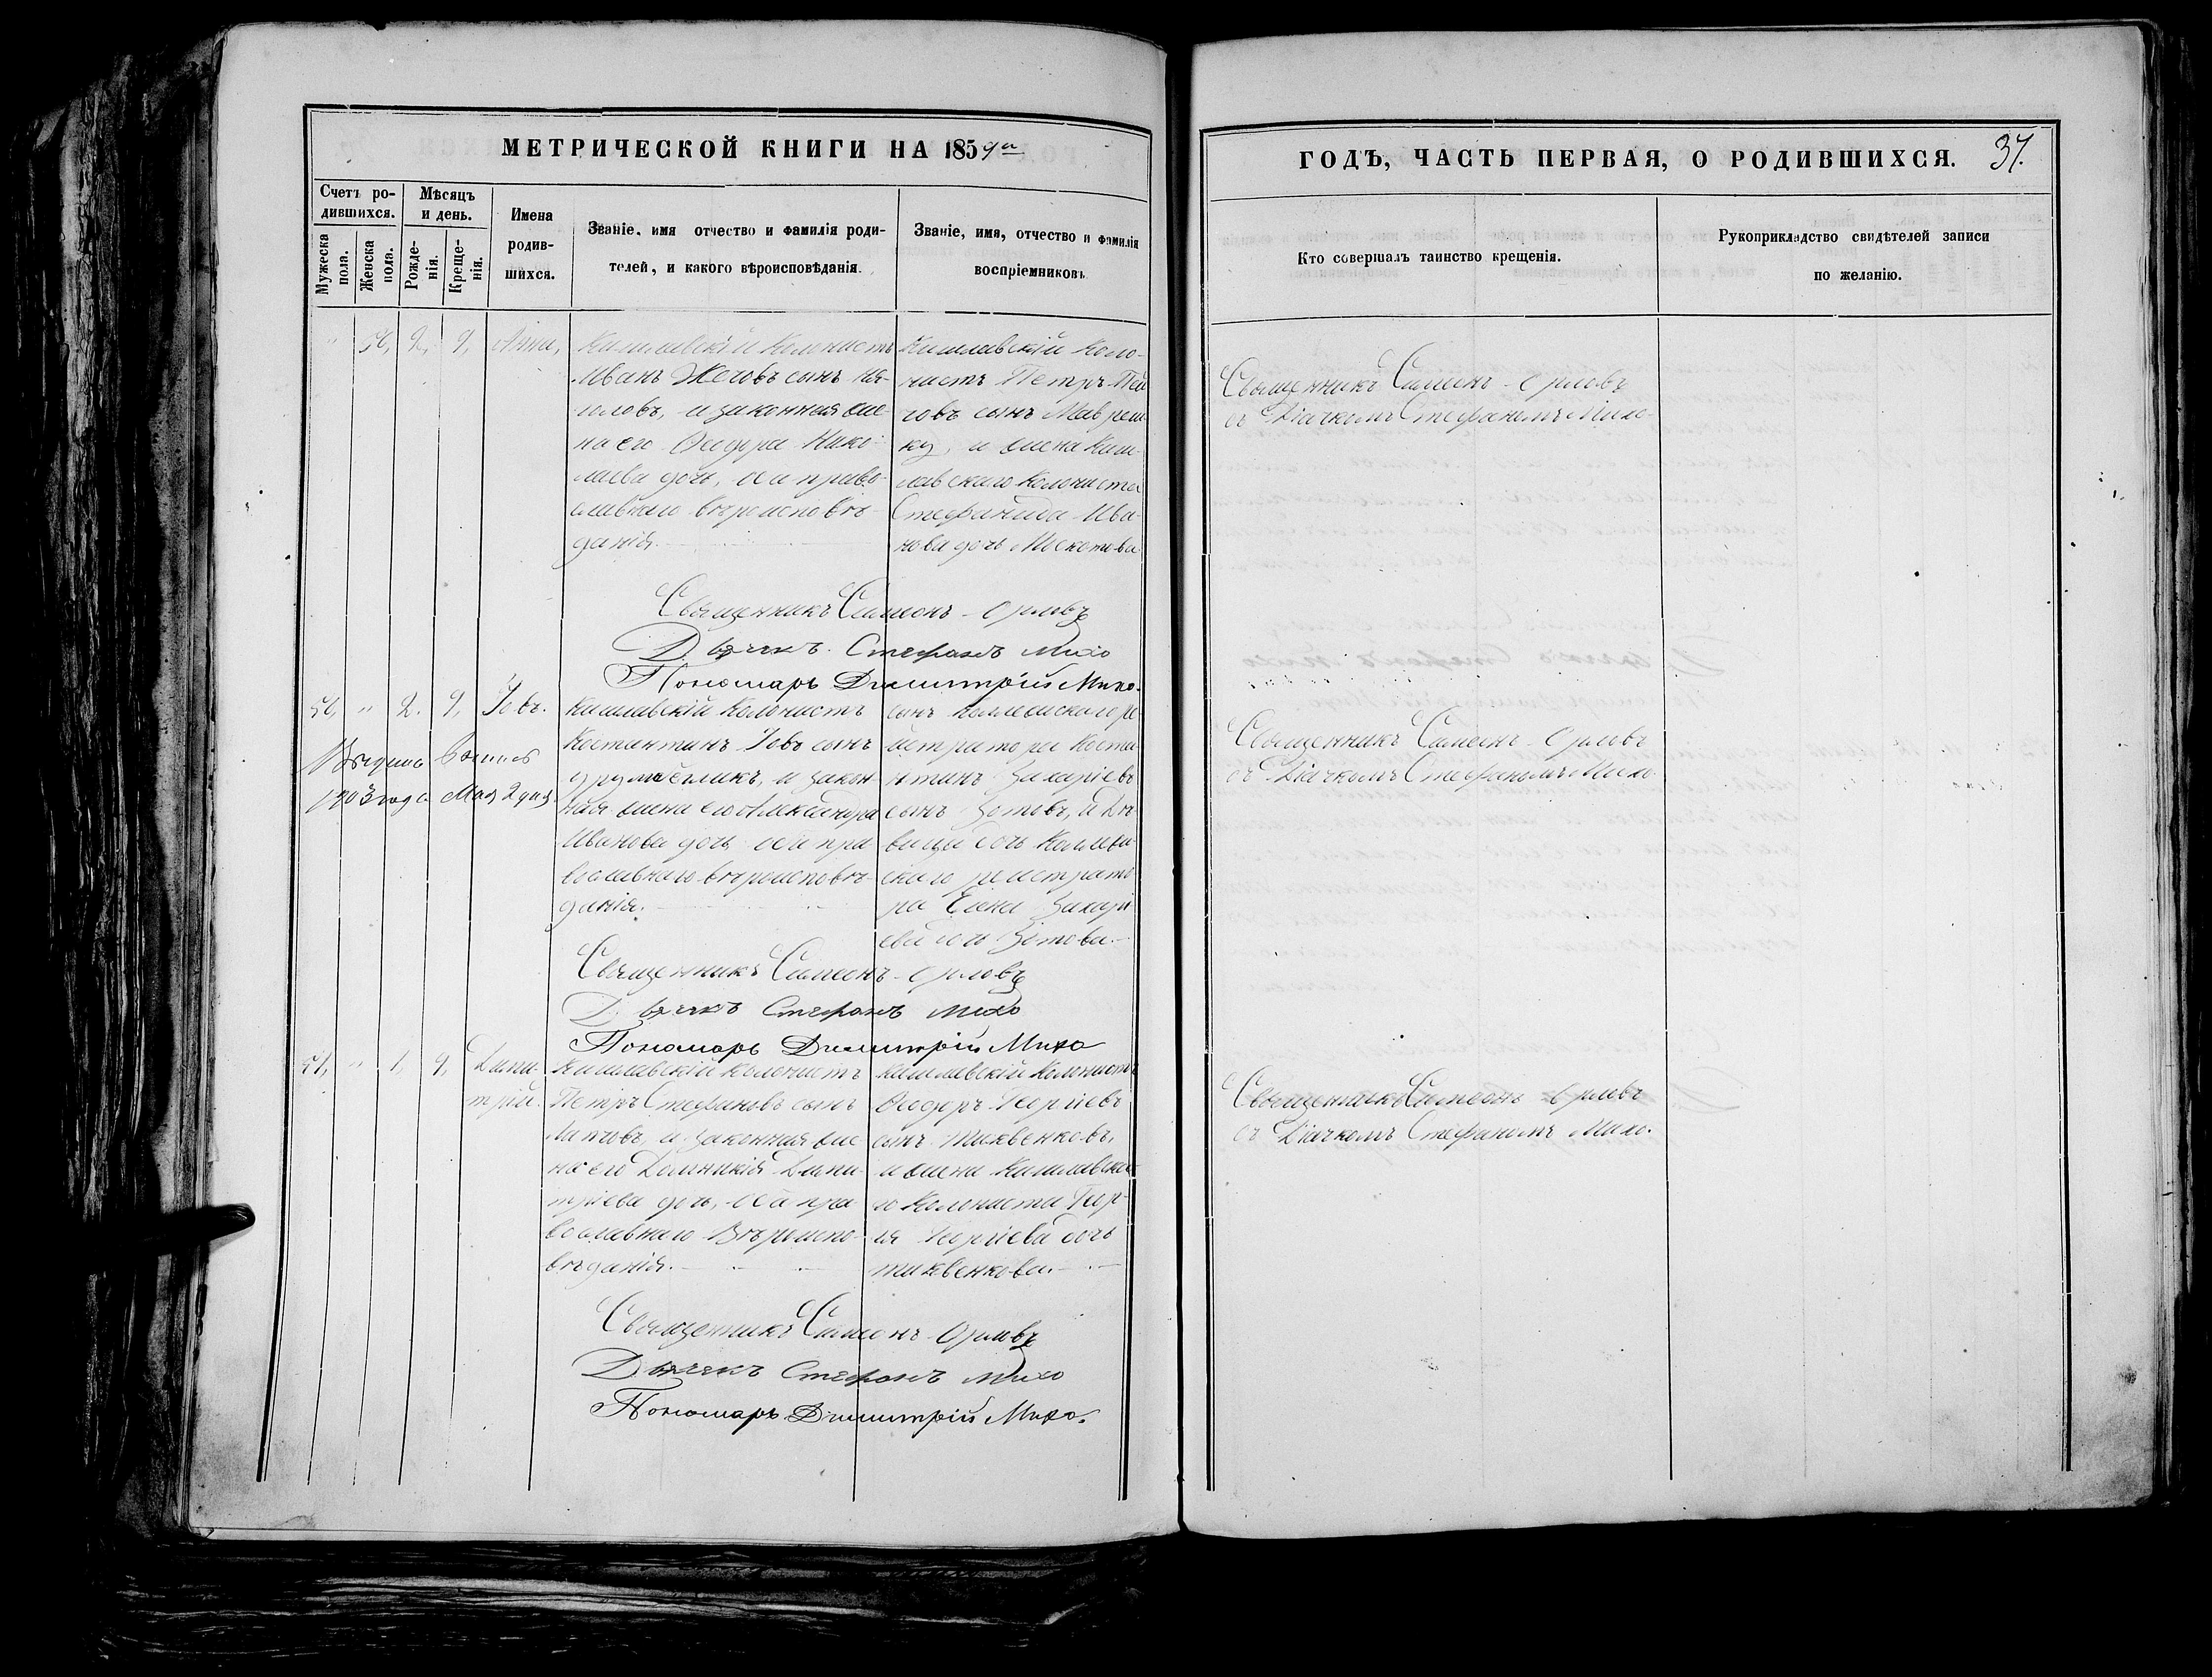 МЕТРИЧЕСКОЙ КНИГИ НА 1859й
Счетъ ро-
дившихся.
Мѣсяцъ
и день.
Мужеска
пола.
Женска
пола.
Рожде-
нія.
Креще-
нія.
Имена
родив-
шихся.
Званіе, имя отчество и фамилія роди-
телей, и какого вѣроисповѣданія.
Званіе, имя, отчество и фамилія
воспріемниковъ
" 50, 2, 9, Анна,
Кишлавскій Колонистъ
Иванъ Жековъ сынъ
и законная же-
на его Ѳеодора Нико-
лаева дочь, оба право-
славнаго вѣроисповѣ-
данія.
Кишлавскій Коло-
нистъ Петръ
сынъ
и жена Киш-
лавскаго Колониста
Стефанида Ива-
нова дочь
Священникъ Симеонъ Орловъ
Дьячекъ Стефанъ Михо
Пономарь Димитрій Михо.
50, " 2. 9, Іовъ.
Выдана
1903 года Мая 2 дня
Кишлавскій Колонистъ
Костантинъ Іовъ сынъ
и закон-
ная жена его Александра
Иванова дочь оба пра
вославнаго вѣроисповѣ-
данія.
сынъ Коллежскаго ре-
истратора Коста-
нтинъ Захаріевъ
сынъ Зотовъ, и Дѣ-
вица дочь Коллеж-
скаго регистрато
ра Елена Захарі
ева дочь Зотова.
Священникъ Симеонъ Орловъ
Дьячекъ Стефанъ Михо
Пономарь Димитрій Михо
51, " 1, 9, Дими-
трій.
Кишлавскій Колонистъ
Петръ Стефановъ сынъ
и законная же
на его Домникія Дими-
тріева дочь, оба пра
вославнаго Вѣроиспо-
вѣданія.
Кишлавскій Колонистъ
Ѳеодоръ Георгіевъ
сынъ Тиквенковъ,
и жена Кишлавска-
го Колониста Геор-
Георгіева дочь
тиквенкова.
Священникъ Симеонъ Орловъ
Дьячекъ Стефанъ Михо
Пономарь Димитрій Михо.
ГОДЪ, ЧАСТЬ ПЕРВАЯ, О РОДИВШИХСЯ. 37.
Кто совершалъ таинство крещенія.
Рукоприкладство свидѣтелей записи
по желанію.
Священникъ Симеонъ Орловъ
съ Діачкомъ Стефаномъ Михо-
Священникъ Симеонъ Орловъ
съ Діачкомъ Стефаномъ Михо
Священникъ Симеонъ Орловъ
съ Діачкомъ Стефаномъ Михо.